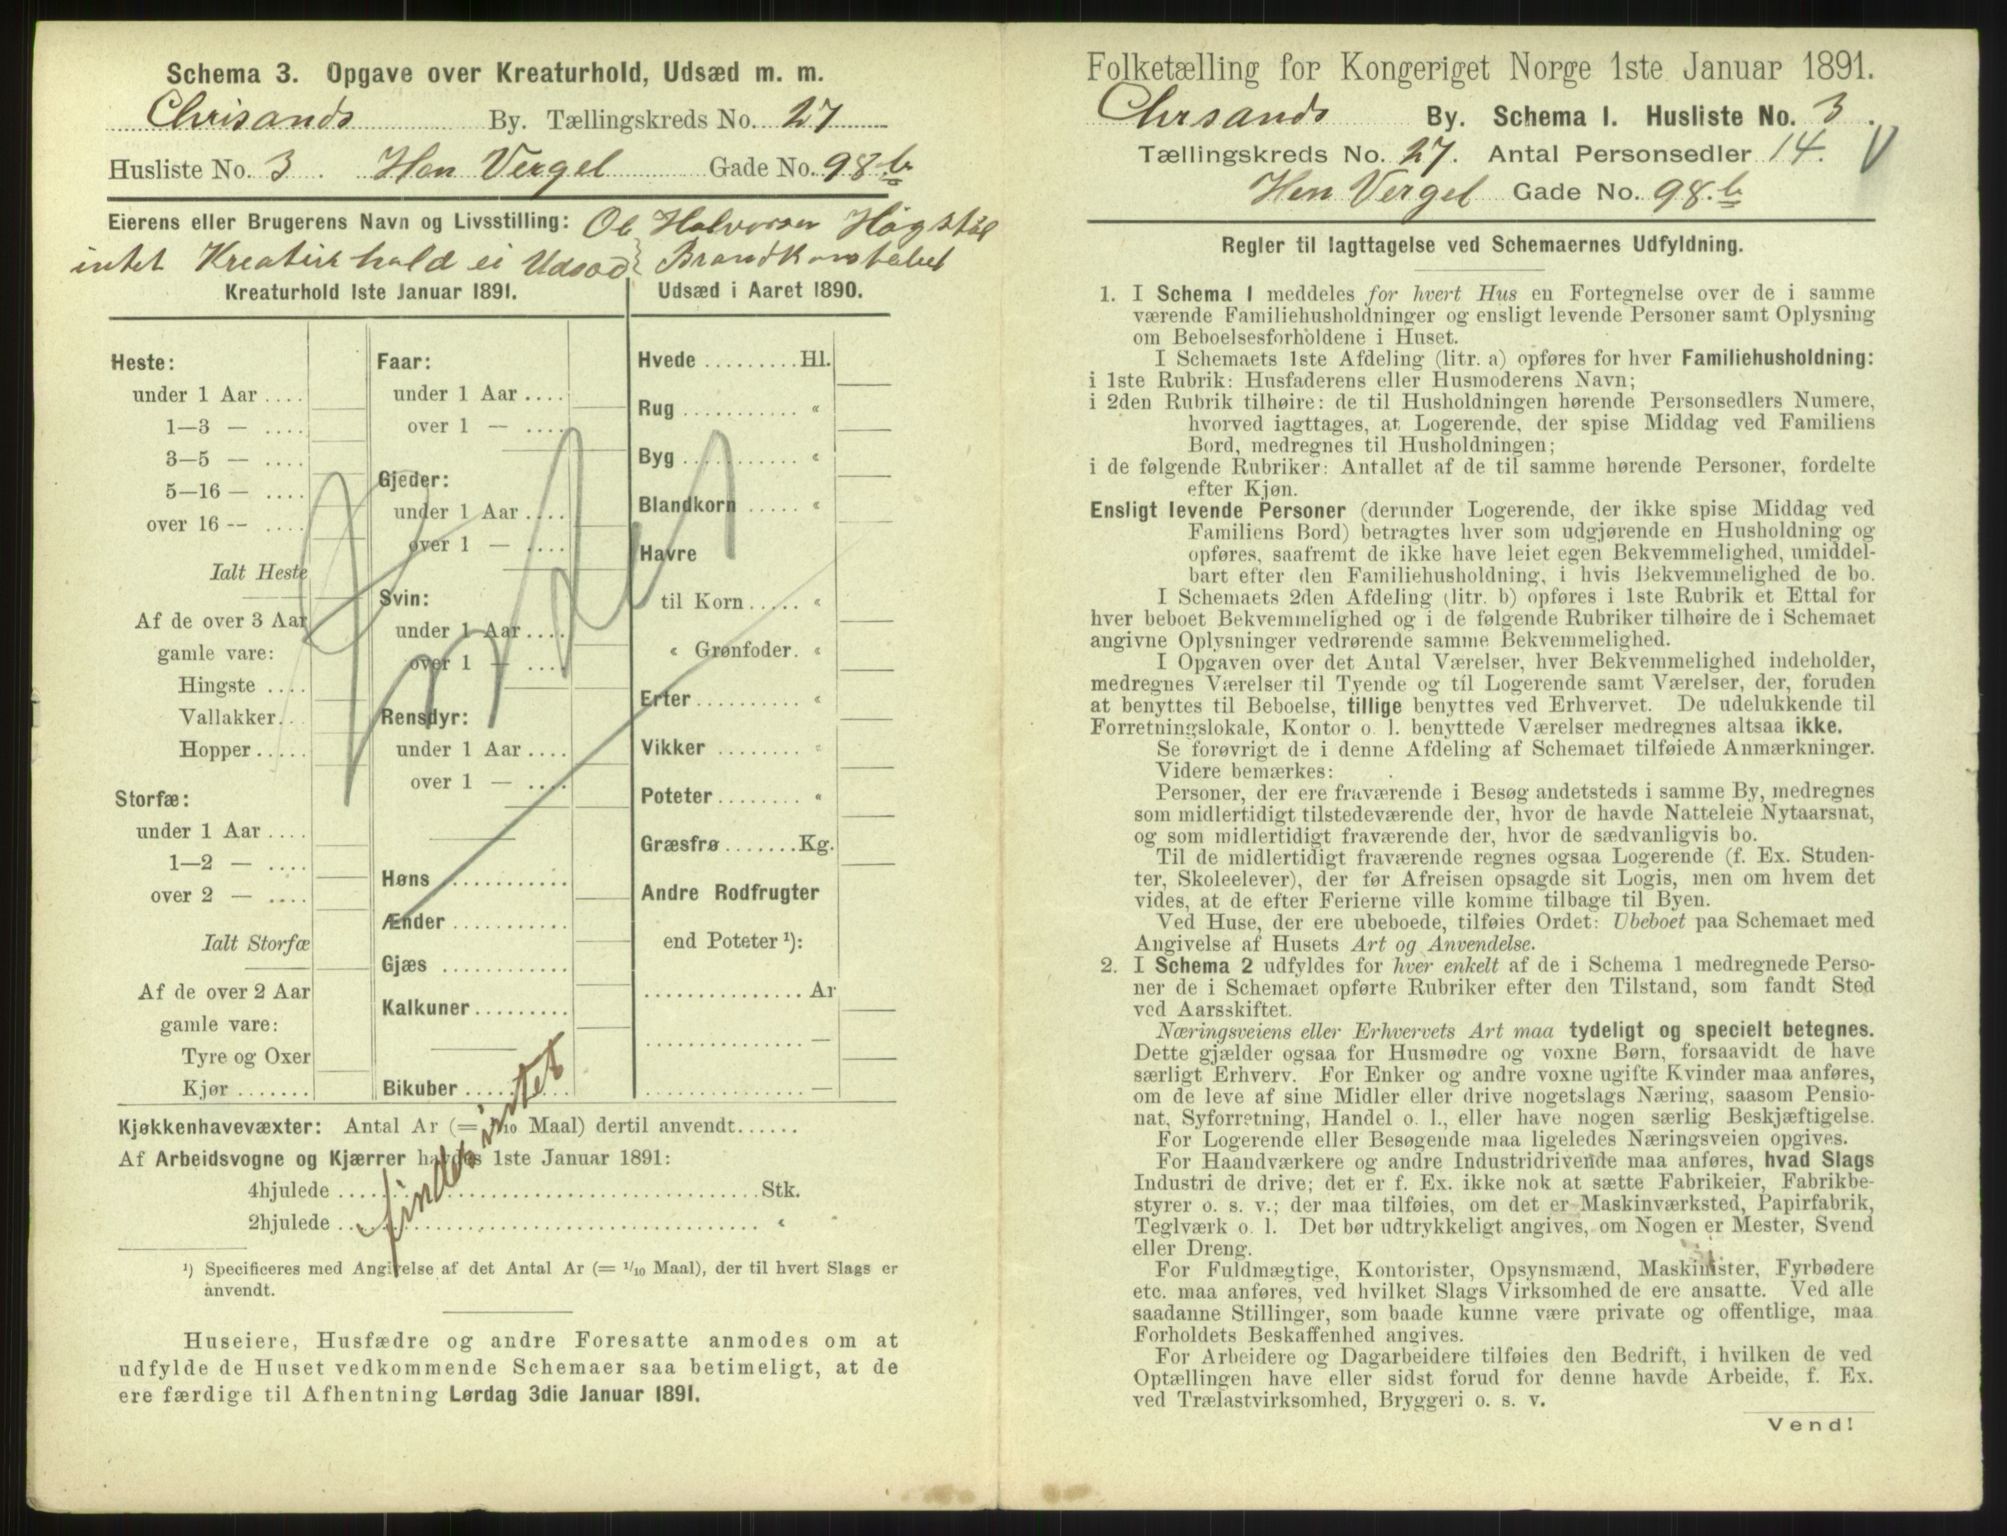 Schema 3. Opgave over Kreaturhold, Udsæd m. m.
Chrisands By. Tællingskreds No. 27
Husliste No. 3. Hen Vergel Gade No. 98 b
Eierens eller Brugerens Navn og Livsstilling: Ol Halvorsen Høgstøl
intet Kreaturhold ei Udsæd Brandkonstabel
Kreaturhold 1ste Januar 1891.
Heste:
under 1 Aar ....
1—3 — ....
3—5 — ....
5—16 — ....
over 16 -- ....
Ialt Heste
Af de over 3 Aar
gamle vare:
Hingste ....
Vallakker..
Hopper .....
Storfæ:
under 1 Aar ....
1—2 — ....
over 2 — ....
Ialt Storfæ
Af de over 2 Aar
gamle vare:
Tyre og Oxer
Kjør .......
Faar:
under 1 Aar ....
over 1 — ....
Gjeder:
under 1 Aar ....
over 1 — ....
Svin:
under 1 Aar ....
over 1 — ....
Rensdyr:
under 1 Aar ....
over 1 — ....
Høns ..........
Ænder ..........
Gjæs ..........
Kalkuner.........
Bikuber .........
Udsæd i Aaret 1890.
Hvede ......... Hl.
Rug ........... “
Byg ........... “
Blandkorn ..... “
Havre
til Korn ..... “
“ Grønfoder. “
Erter .......... “
Vikker ......... “
Poteter ........ “
Græsfrø ....... Kg.
Andre Rodfrugter
end Poteter ¹):
............... Ar
............... —
............... —
findes intet
Kjøkkenhavevæxter: Antal Ar (= 1/10 Maal) dertil anvendt......
Af Arbeidsvogne og Kjærrer havdes 1ste Januar 1891:
4hjulede ........................................ Stk.
2hjulede ........................................ “
¹) Specificeres med Angivelse af det Antal Ar (= 1/10 Maal), der til hvert Slags er
anvendt.
Huseiere, Husfædre og andre Foresatte anmodes om at
udfylde de Huset vedkommende Schemaer saa betimeligt, at de
ere færdige til Afhentning Lørdag 3die Januar 1891.
Folketælling for Kongeriget Norge 1ste Januar 1891.
Chrsands By. Schema I. Husliste No. 3.
Tællingskreds No. 27. Antal Personsedler 14. V
Hen Vergel Gade No. 98. b
Regler til Iagttagelse ved Schemaernes Udfyldning.
1. I Schema 1 meddeles for hvert Hus en Fortegnelse over de i samme
værende Familiehusholdninger og ensligt levende Personer samt Oplysning
om Beboelsesforholdene i Huset.
I Schemaets 1ste Afdeling (litr. a) opføres for hver Familiehusholdning:
i 1ste Rubrik: Husfaderens eller Husmoderens Navn;
i 2den Rubrik tilhøire: de til Husholdningen hørende Personsedlers Numere,
hvorved iagttages, at Logerende, der spise Middag ved Familiens
Bord, medregnes til Husholdningen;
i de følgende Rubriker: Antallet af de til samme hørende Personer, fordelte
efter Kjøn.
Ensligt levende Personer (derunder Logerende, der ikke spise Middag ved
Familiens Bord) betragtes hver som udgjørende en Husholdning og
opføres, saafremt de ikke have leiet egen Bekvemmelighed, umiddel-
bart efter den Familiehusholdning, i hvis Bekvemmelighed de bo.
I Schemaets 2den Afdeling (litr. b) opføres i 1ste Rubrik et Ettal for
hver beboet Bekvemmelighed og i de følgende Rubriker tilhøire de i Schemaet
angivne Oplysninger vedrørende samme Bekvemmelighed.
I Opgaven over det Antal Værelser, hver Bekvemmelighed indeholder,
medregnes Værelser til Tyende og til Logerende samt Værelser, der, foruden
at benyttes til Beboelse, tillige benyttes ved Erhvervet. De udelukkende til
Forretningslokale, Kontor o. l. benyttede Værelser medregnes altsaa ikke.
Se forøvrigt de i denne Afdeling af Schemaet tilføiede Anmærkninger.
Videre bemærkes:
Personer, der ere fraværende i Besøg andetsteds i samme By, medregnes
som midlertidigt tilstedeværende der, hvor de havde Natteleie Nytaarsnat,
og som midlertidigt fraværende der, hvor de sædvanligvis bo.
Til de midlertidigt fraværende regnes ogsaa Logerende (f. Ex. Studen-
ter, Skoleelever), der før Afreisen opsagde sit Logis, men om hvem det
vides, at de efter Ferierne ville komme tilbage til Byen.
Ved Huse, der ere ubeboede, tilføies Ordet: Ubeboet paa Schemaet med
Angivelse af Husets Art og Anvendelse.
2. I Schema 2 udfyldes for hver enkelt af de i Schema 1 medregnede Perso-
ner de i Schemaet opførte Rubriker efter den Tilstand, som fandt Sted
ved Aarsskiftet.
Næringsveiens eller Erhvervets Art maa tydeligt og specielt betegnes.
Dette gjælder ogsaa for Husmødre og voxne Børn, forsaavidt de have
særligt Erhverv. For Enker og andre voxne ugifte Kvinder maa anføres,
om de leve af sine Midler eller drive nogetslags Næring, saasom Pensio-
nat, Syforretning, Handel o. l., eller have nogen særlig Beskjæftigelse.
For Logerende eller Besøgende maa ligeledes Næringsveien opgives.
For Haandværkere og andre Industridrivende maa anføres, hvad Slags
Industri de drive; det er f. Ex. ikke nok at sætte Fabrikeier, Fabrikbe-
styrer o. s. v.; der maa tilføies, om det er Maskinværksted, Papirfabrik,
Teglværk o. l. Det bør udtrykkeligt angives, om Nogen er Mester, Svend
eller Dreng.
For Fuldmægtige, Kontorister, Opsynsmænd, Maskinister, Fyrbødere
etc. maa anføres, ved hvilket Slags Virksomhed de ere ansatte. Ved alle
saadanne Stillinger, som baade kunne være private og offentlige, maa
Forholdets Beskaffenhed angives.
For Arbeidere og Dagarbeidere tilføies den Bedrift, i hvilken de ved
Optællingen have eller sidst forud for denne havde Arbeide, f. Ex.
ved Trælastvirksomhed, Bryggeri o. s. v.
Vend!